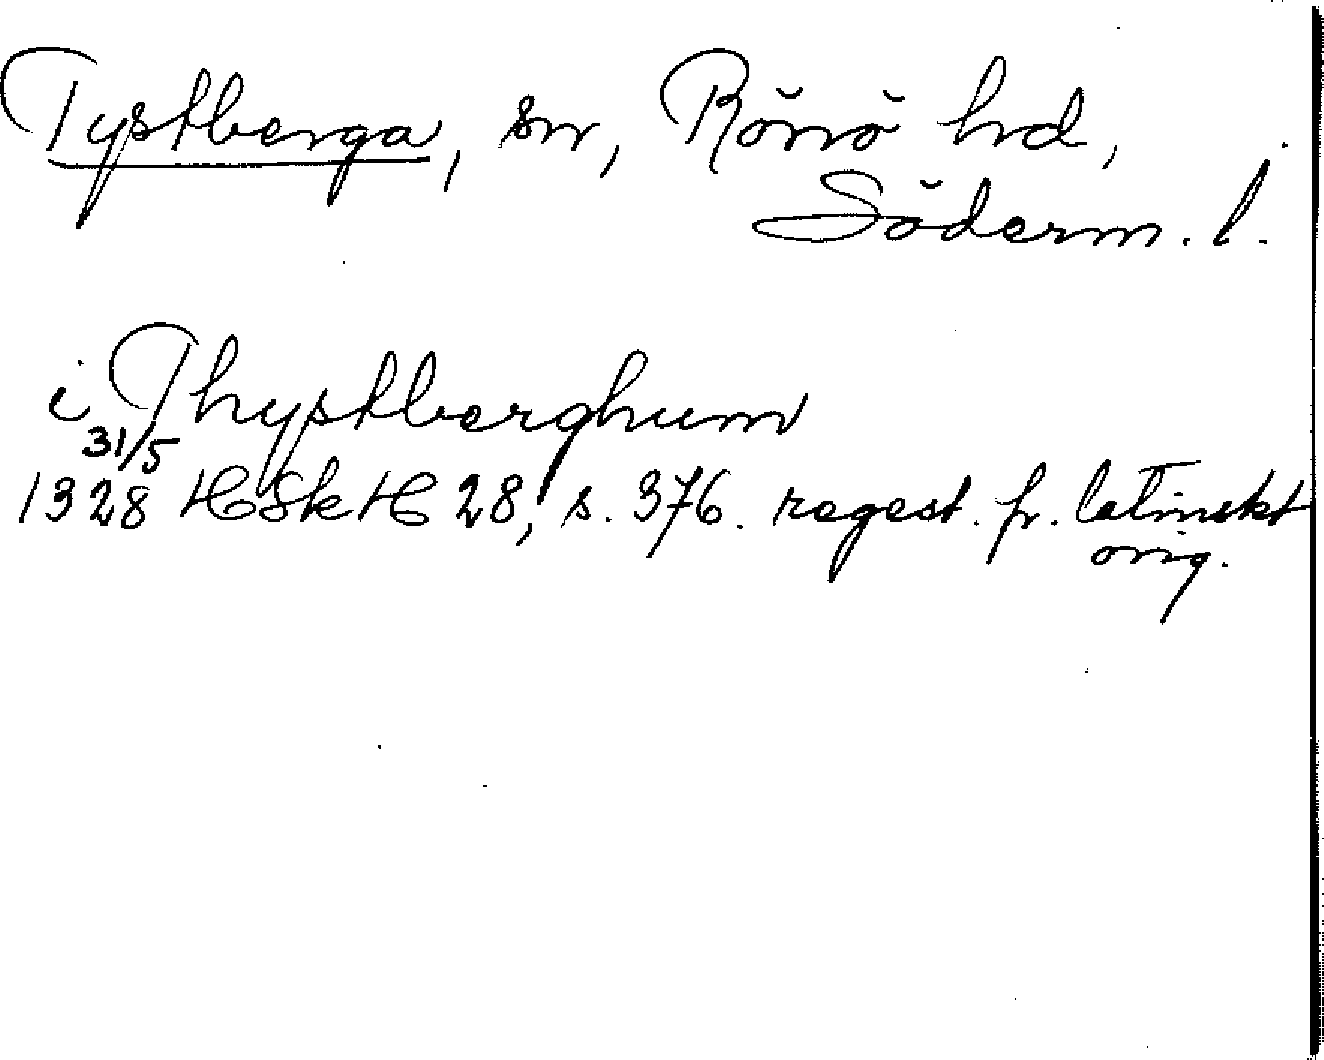 Tystberga, sn, Rönö hd,
Söderm. l.
i Thystberghum
31/5
1328 HSkH 28, s. 376. regest. fr. latinskt
orig.